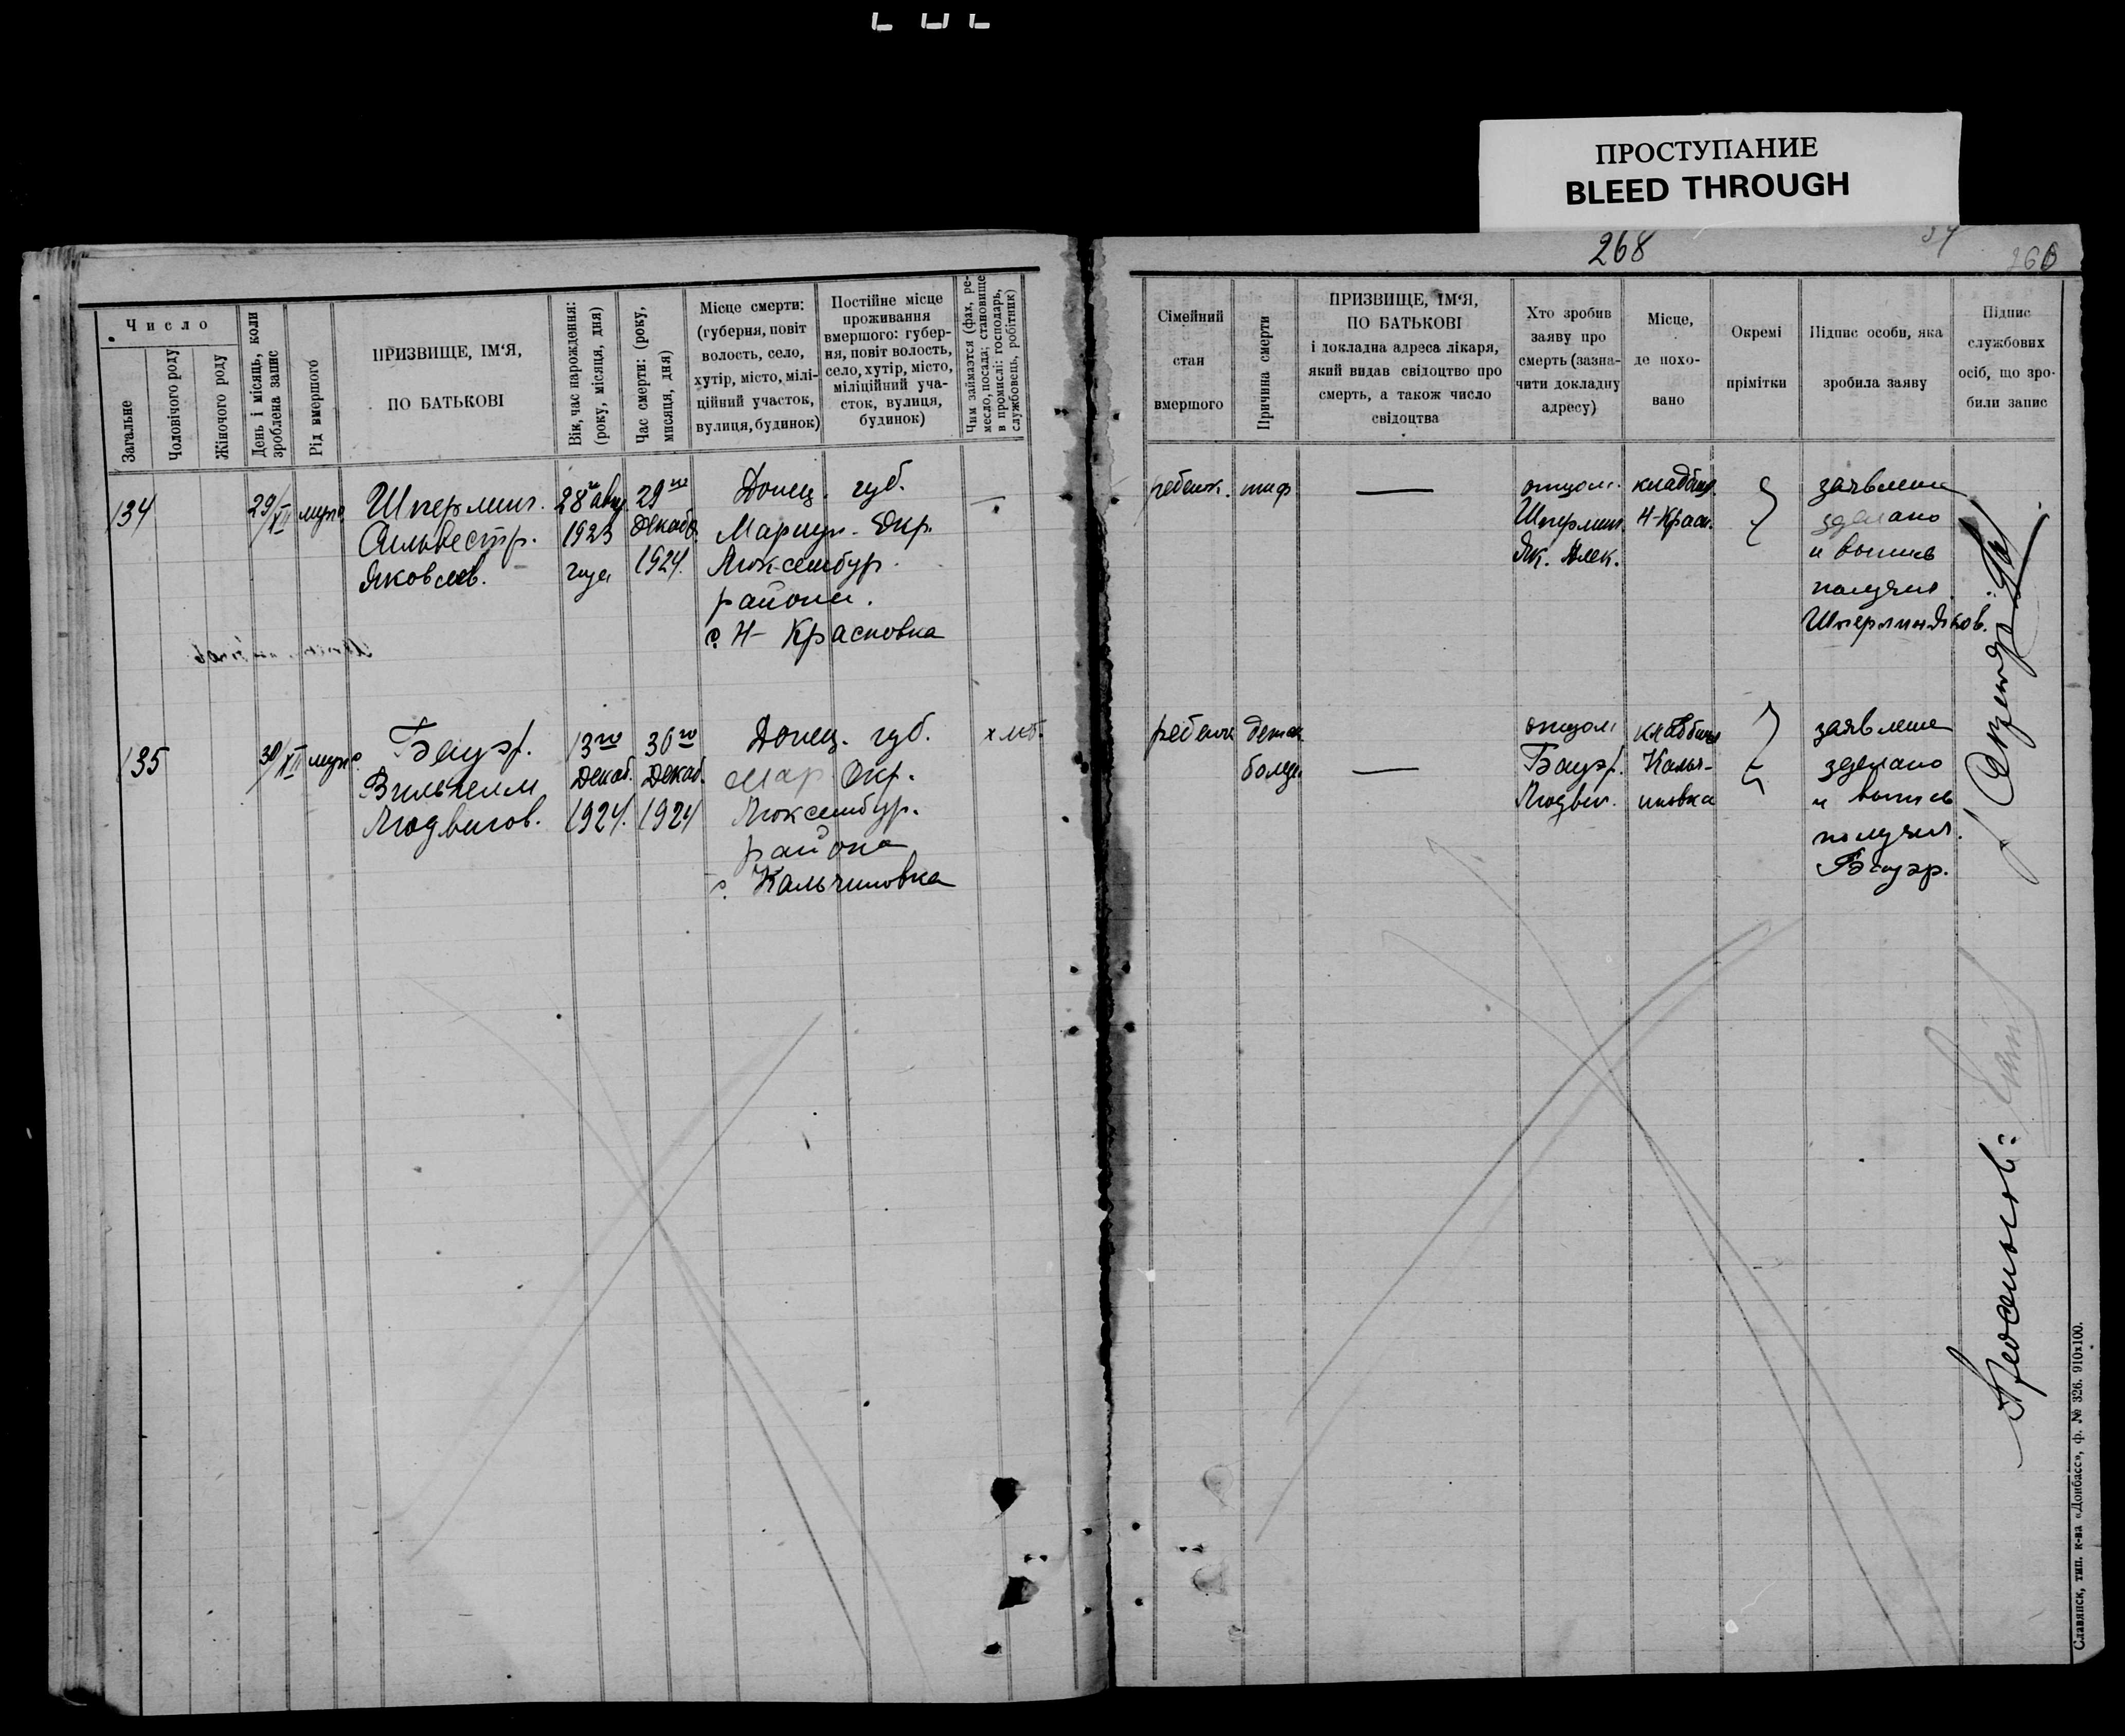 ПРОСТУПАНИЕ
BLEED THROUGH
268
Число
Загальне
Чоловічого роду
Жіночого роду
День і місяць, коли
зроблена запис
Рід вмершого
ПРИЗВИЩЕ, ІМ'Я,
ПО БАТЬКОВІ
Вік, час народження:
(року, місяця, дня)
Час смерти: (року,
мисяця, дня)
Місце смерти:
(губерня, повіт
волость, село,
хутір, місто, мілі-
ційний участок,
вулиця, будинок)
Постійне місце
проживання
вмершого: губер-
ня, повіт волость,
село, хутір, місто,
міліційний уча-
сток, вулиця,
будинок)
Чим займаэтся (фах, ре-
месло, посада; становище
в промислі: господарь,
службовець, робітник)
134
29/XII
Шперлинг.
Сильвестр.
Яковлев.
28го авг.
1923
года
29го
Декаб.
1924.
Донец. губ.
Мариуп. Окр.
Люксембур.
района.
с. Н-Красновка
—
135
30/XII
Бауэр.
Вильгелм
Людвигов.
13го
Декаб.
1924.
30го
Декаб.
1924
Донец. губ.
Мар Окр.
Люксембур.
района
с. Кальчиновка
хлеб.
Сімейний
стан
вмершого
Причина смерти
ПРИЗВИЩЕ, ІМ'Я,
ПО БАТЬКОВІ
і докладна адреса лікаря,
який видав свідоцтво про
смерть, а також число
свідоцтва
Хто зробив
заяву про
смерть (зазна-
чити докладну
адресу)
Місце,
де похо-
вано
Окремі
прімітки
Підпис особи, яка
зробила заяву
Підпис
службових
осіб, що зро-
били запис
ребенк.
тиф
—
отцом.
Шперлинг
Як. Алек.
кладбище
Н-Красн.
заявление
зделано
и выпись
получил
Шперлинг Яков.
ребенк
детск
болезн
—
отцом
Бауэр.
Людвиг.
кладбище
Кальч-
иновка
заявление
зделано
и выпись
получил.
Бауэр.
Славянск, тип. к-ва «Донбасс», ф. № 326. 910х100.